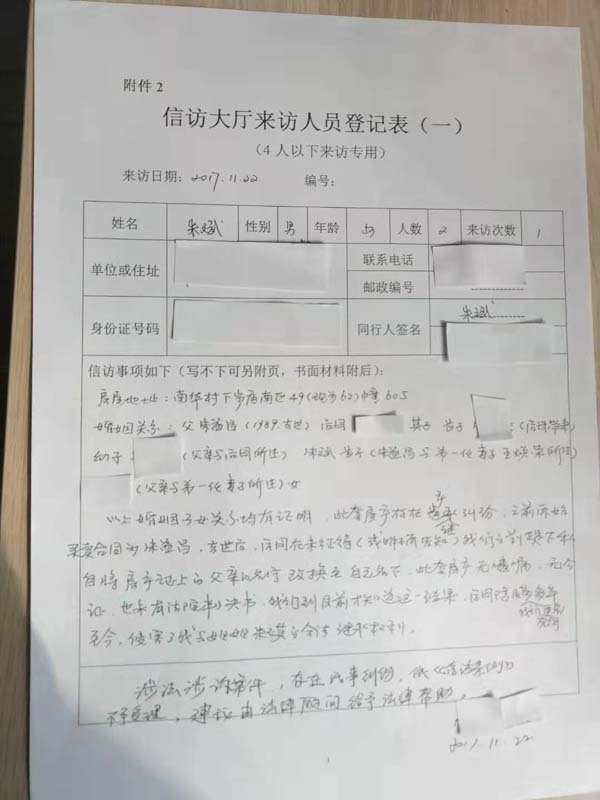 附件 2
信访大厅来访人员登记表（一）
（4 人以下来访专用）
来访日期： 2017.11.22 编号：
姓名 朱斌 性别 男 年龄 人数 2 来访次数 1
单位或住址 联系电话
邮政编号
身份证号码 同行人签名 朱斌
信访事项如下（写不下可另附页，书面材料附后）：
房屋地址：南华村下步庙南区49 605
婚姻关系：父 朱 (1989去世) 后母 其子
幼子 (父亲与后母所生) 朱斌 (朱 与第一任妻子王 所生)
(父亲与第一任妻子所生) 女
以上婚姻子女关系均有证明，此套房产存在 纠纷，之前原始
买卖合同为朱 ，去世后，后母在未征得(或明确告知)我们之前提下
自将房产证上的父亲名字改换之自己名下，此套房产无遗嘱，无公
证，也未有法院判决书，我们到目前才知道这一结果，后母隐瞒多年
至今，侵害了我与姐姐朱 合法继承权利。
涉法涉诉案件，存在民事纠纷，依《信访条例》
不予受理，建议由法律顾问给予法律帮助。
2017.11.22